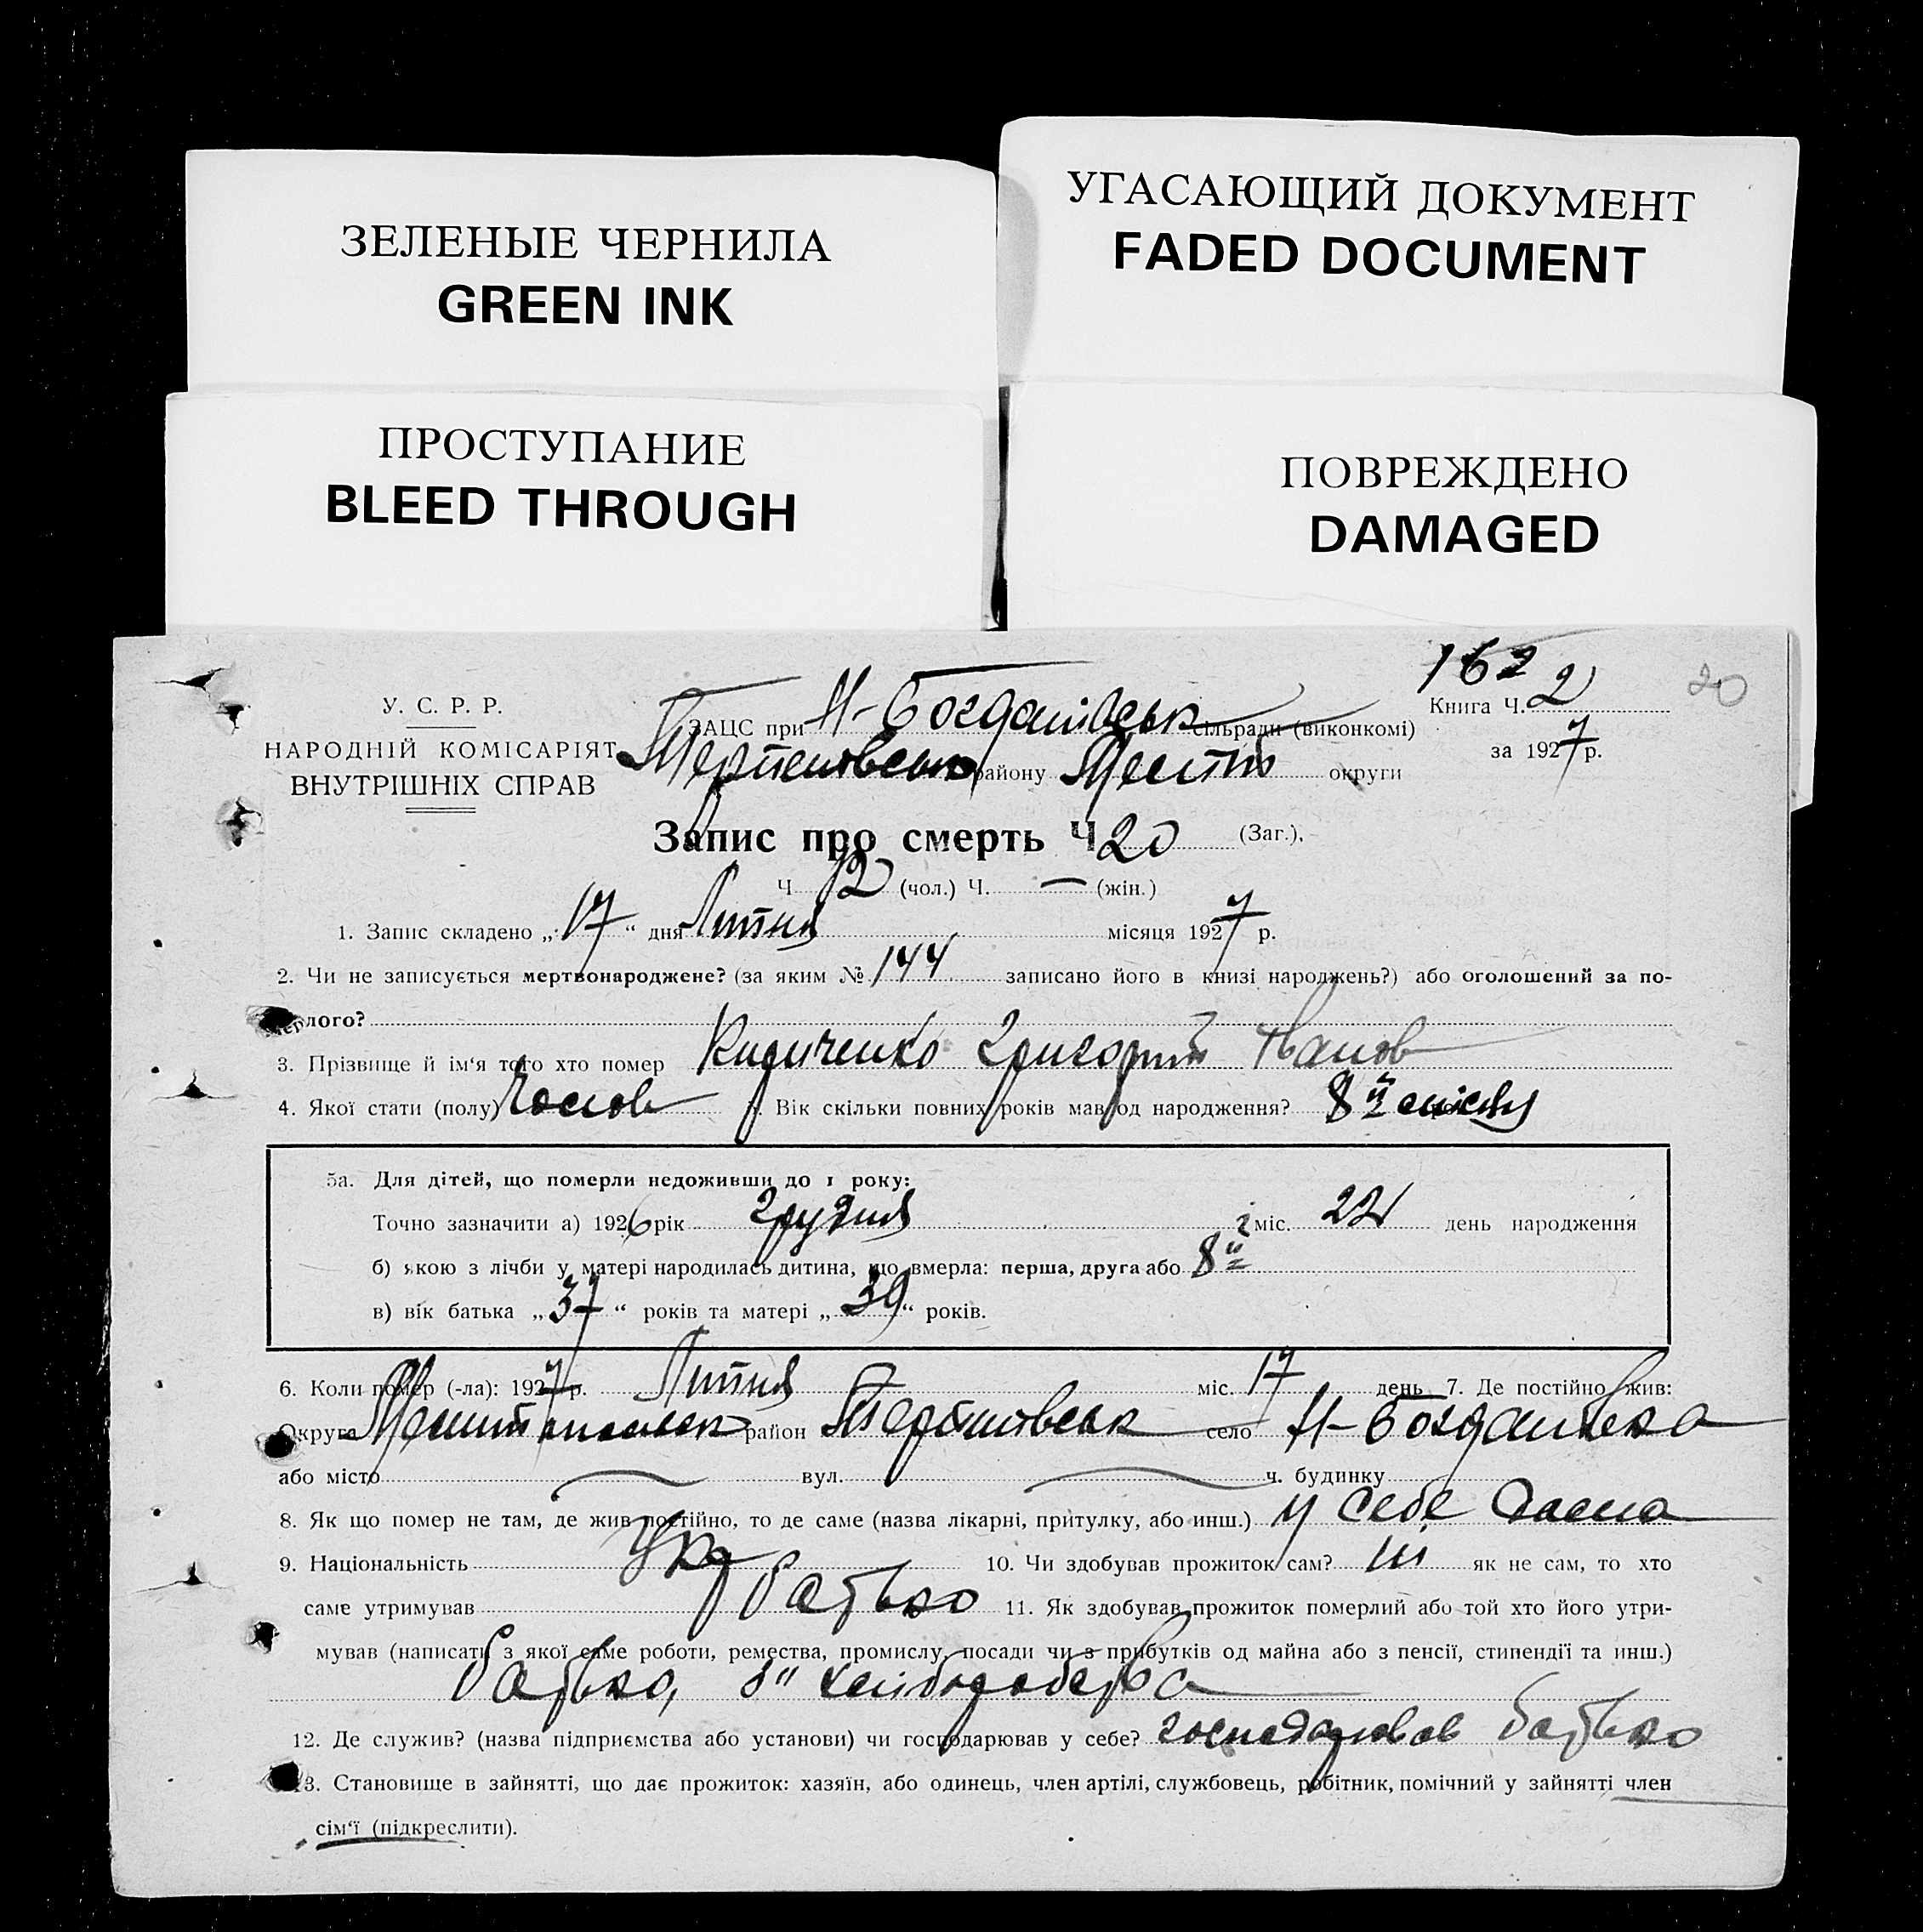 ЗЕЛЕНЫЕ ЧЕРНИЛА
GREEN INK
УГАСАЮЩИЙ ДОКУМЕНТ
FADED DOCUMENT
ПРОСТУПАНИЕ
BLEED THROUGH
ПОВРЕЖДЕНО
DAMAGED
162
20
У. С. Р. Р.
НАРОДНІЙ КОМІСАРІЯТ
ВНУТРІШНІХ СПРАВ
Книга Ч. 2
за 1927 р.
ЗАЦС при Н-Богданівськ сільради (виконкомі)
району Меліт округи
Запис про смерть Ч 20 (Заг.).
Ч 12 (чол.) Ч. — (жін.)
1. Запис складено „17“ дня Липня місяця 1927 р.
2. Чи не записується мертвонароджене? (за яким № 144 записано його в книзі народжень?) або оголошений за по-
мерлого?
3. Прізвище й ім'я того хто помер Григорій Іванов
4. Якої стати (полу) Чолов 5. Вік скільки повних років мав од народження? 8й місяц
5а. Для дітей, що померли недоживши до 1 року:
Точно зазначити а) 1926 рік Грудня міс. 22 день народження
б) якою з лічби у матері народилась дитина, що вмерла: перша, друга або 8й
в) вік батька „37“ років та матері „39“ років.
6. Коли помер (-ла): 1927 р. Липня міс. 17 день 7. Де постійно жив:
Округа район село Н-Богданівка
або місто вул. ч. будинку
8. Як що помер не там, де жив постійно, то де саме (назва лікарні, притулку, або инш.) у себе дома
9. Національність Укр 10. Чи здобував прожиток сам? ні як не сам, то хто
саме утримував батько 11. Як здобував прожиток померлий або той хто його утри-
мував (написати з якої саме роботи, ремества, промислу, посади чи з прибутків од майна або з пенсії, стипендії та инш.)
батько, з хліборобства
12. Де служив? (назва підприємства або установи) чи господарював у себе? господарював батько
13. Становище в зайнятті, що дає прожиток: хазяїн, або одинець, член артілі, службовець, робітник, помічний у зайнятті член
сім'ї (підкреслити).